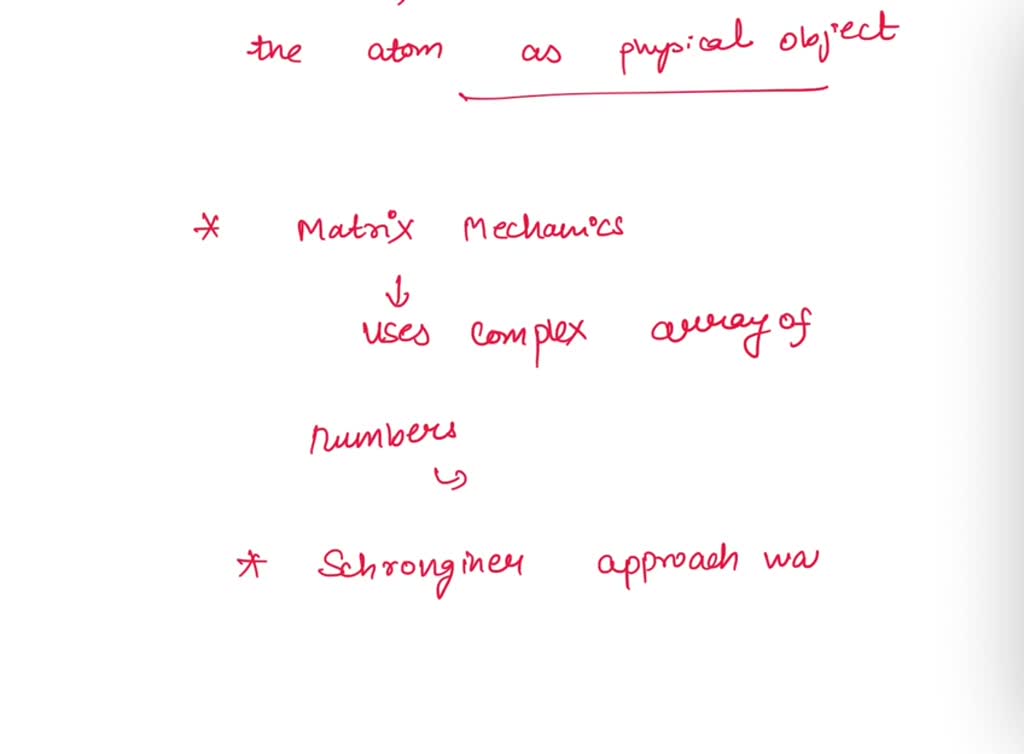 the atom as physical object
* Matrix Mechanics
↓
uses complex array of
numbers
↪
* Schronginer approach wa